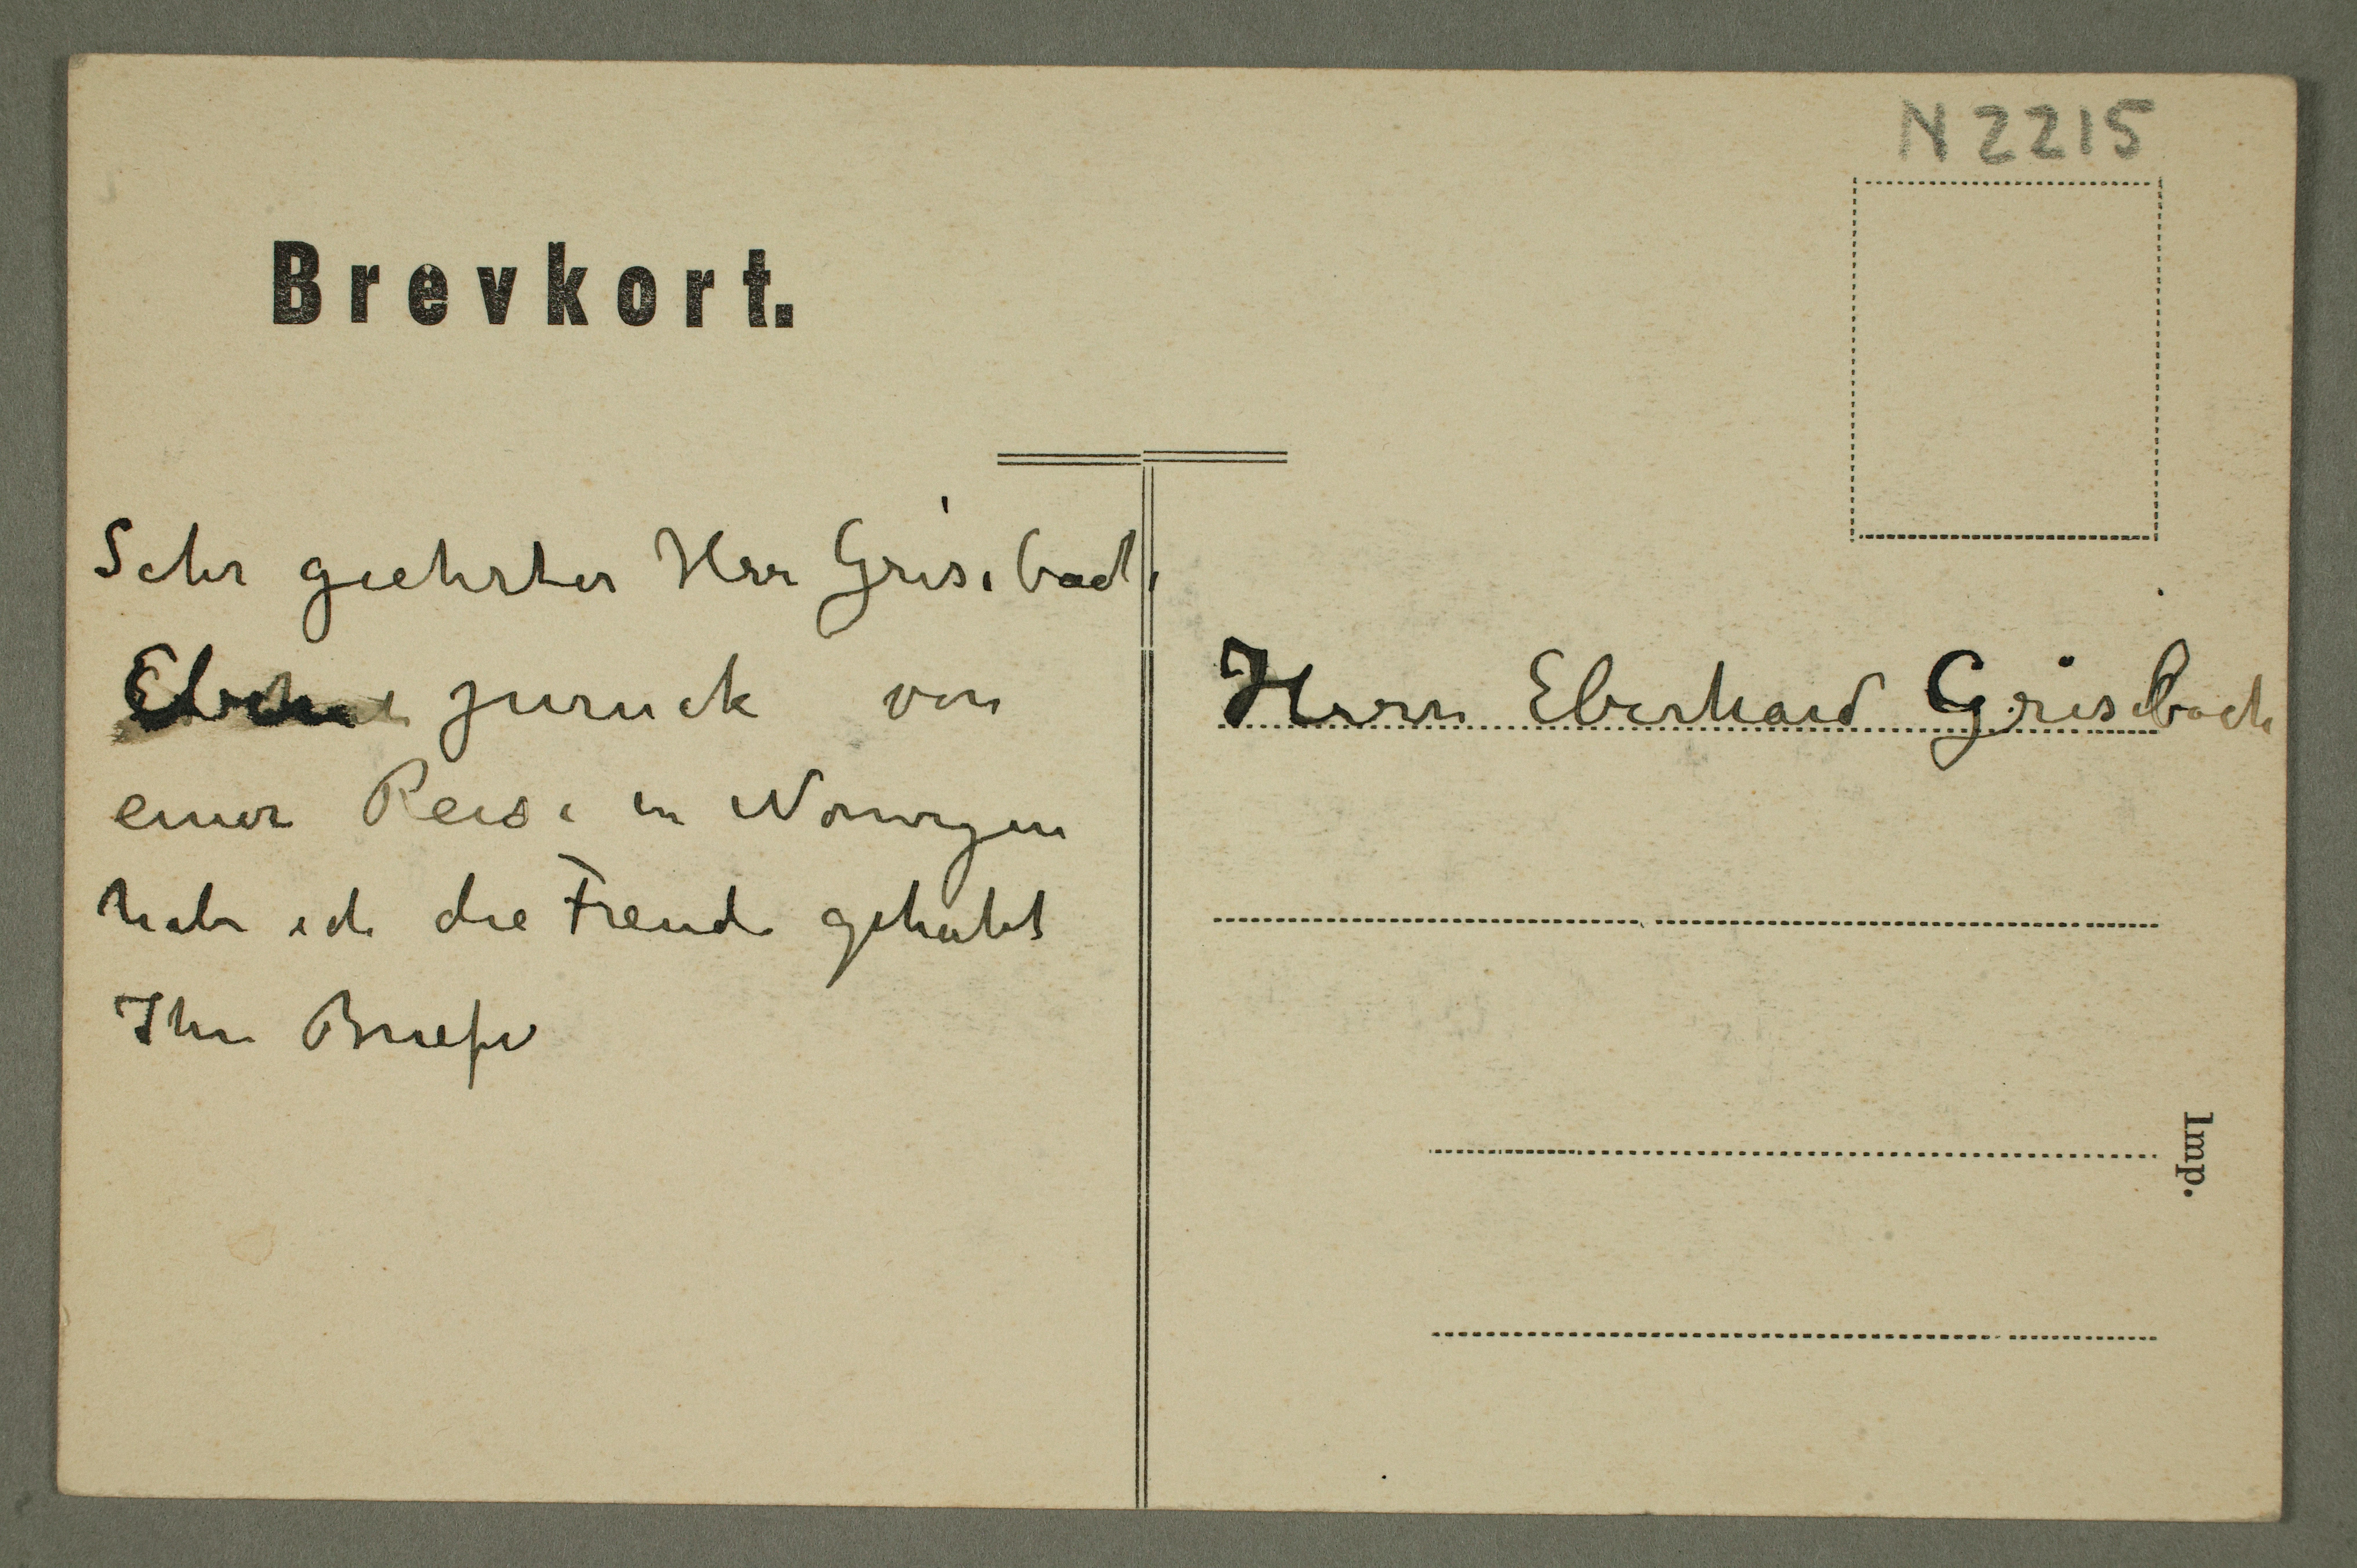 N 2215
Brevkort.
Sehr geehrter Herr Grisebach
zuruck von
einer Reise in Norwegen
habe ich die Freude gehabt
Ihre Briefe
Herrn Eberhard Grisebach
Imp.